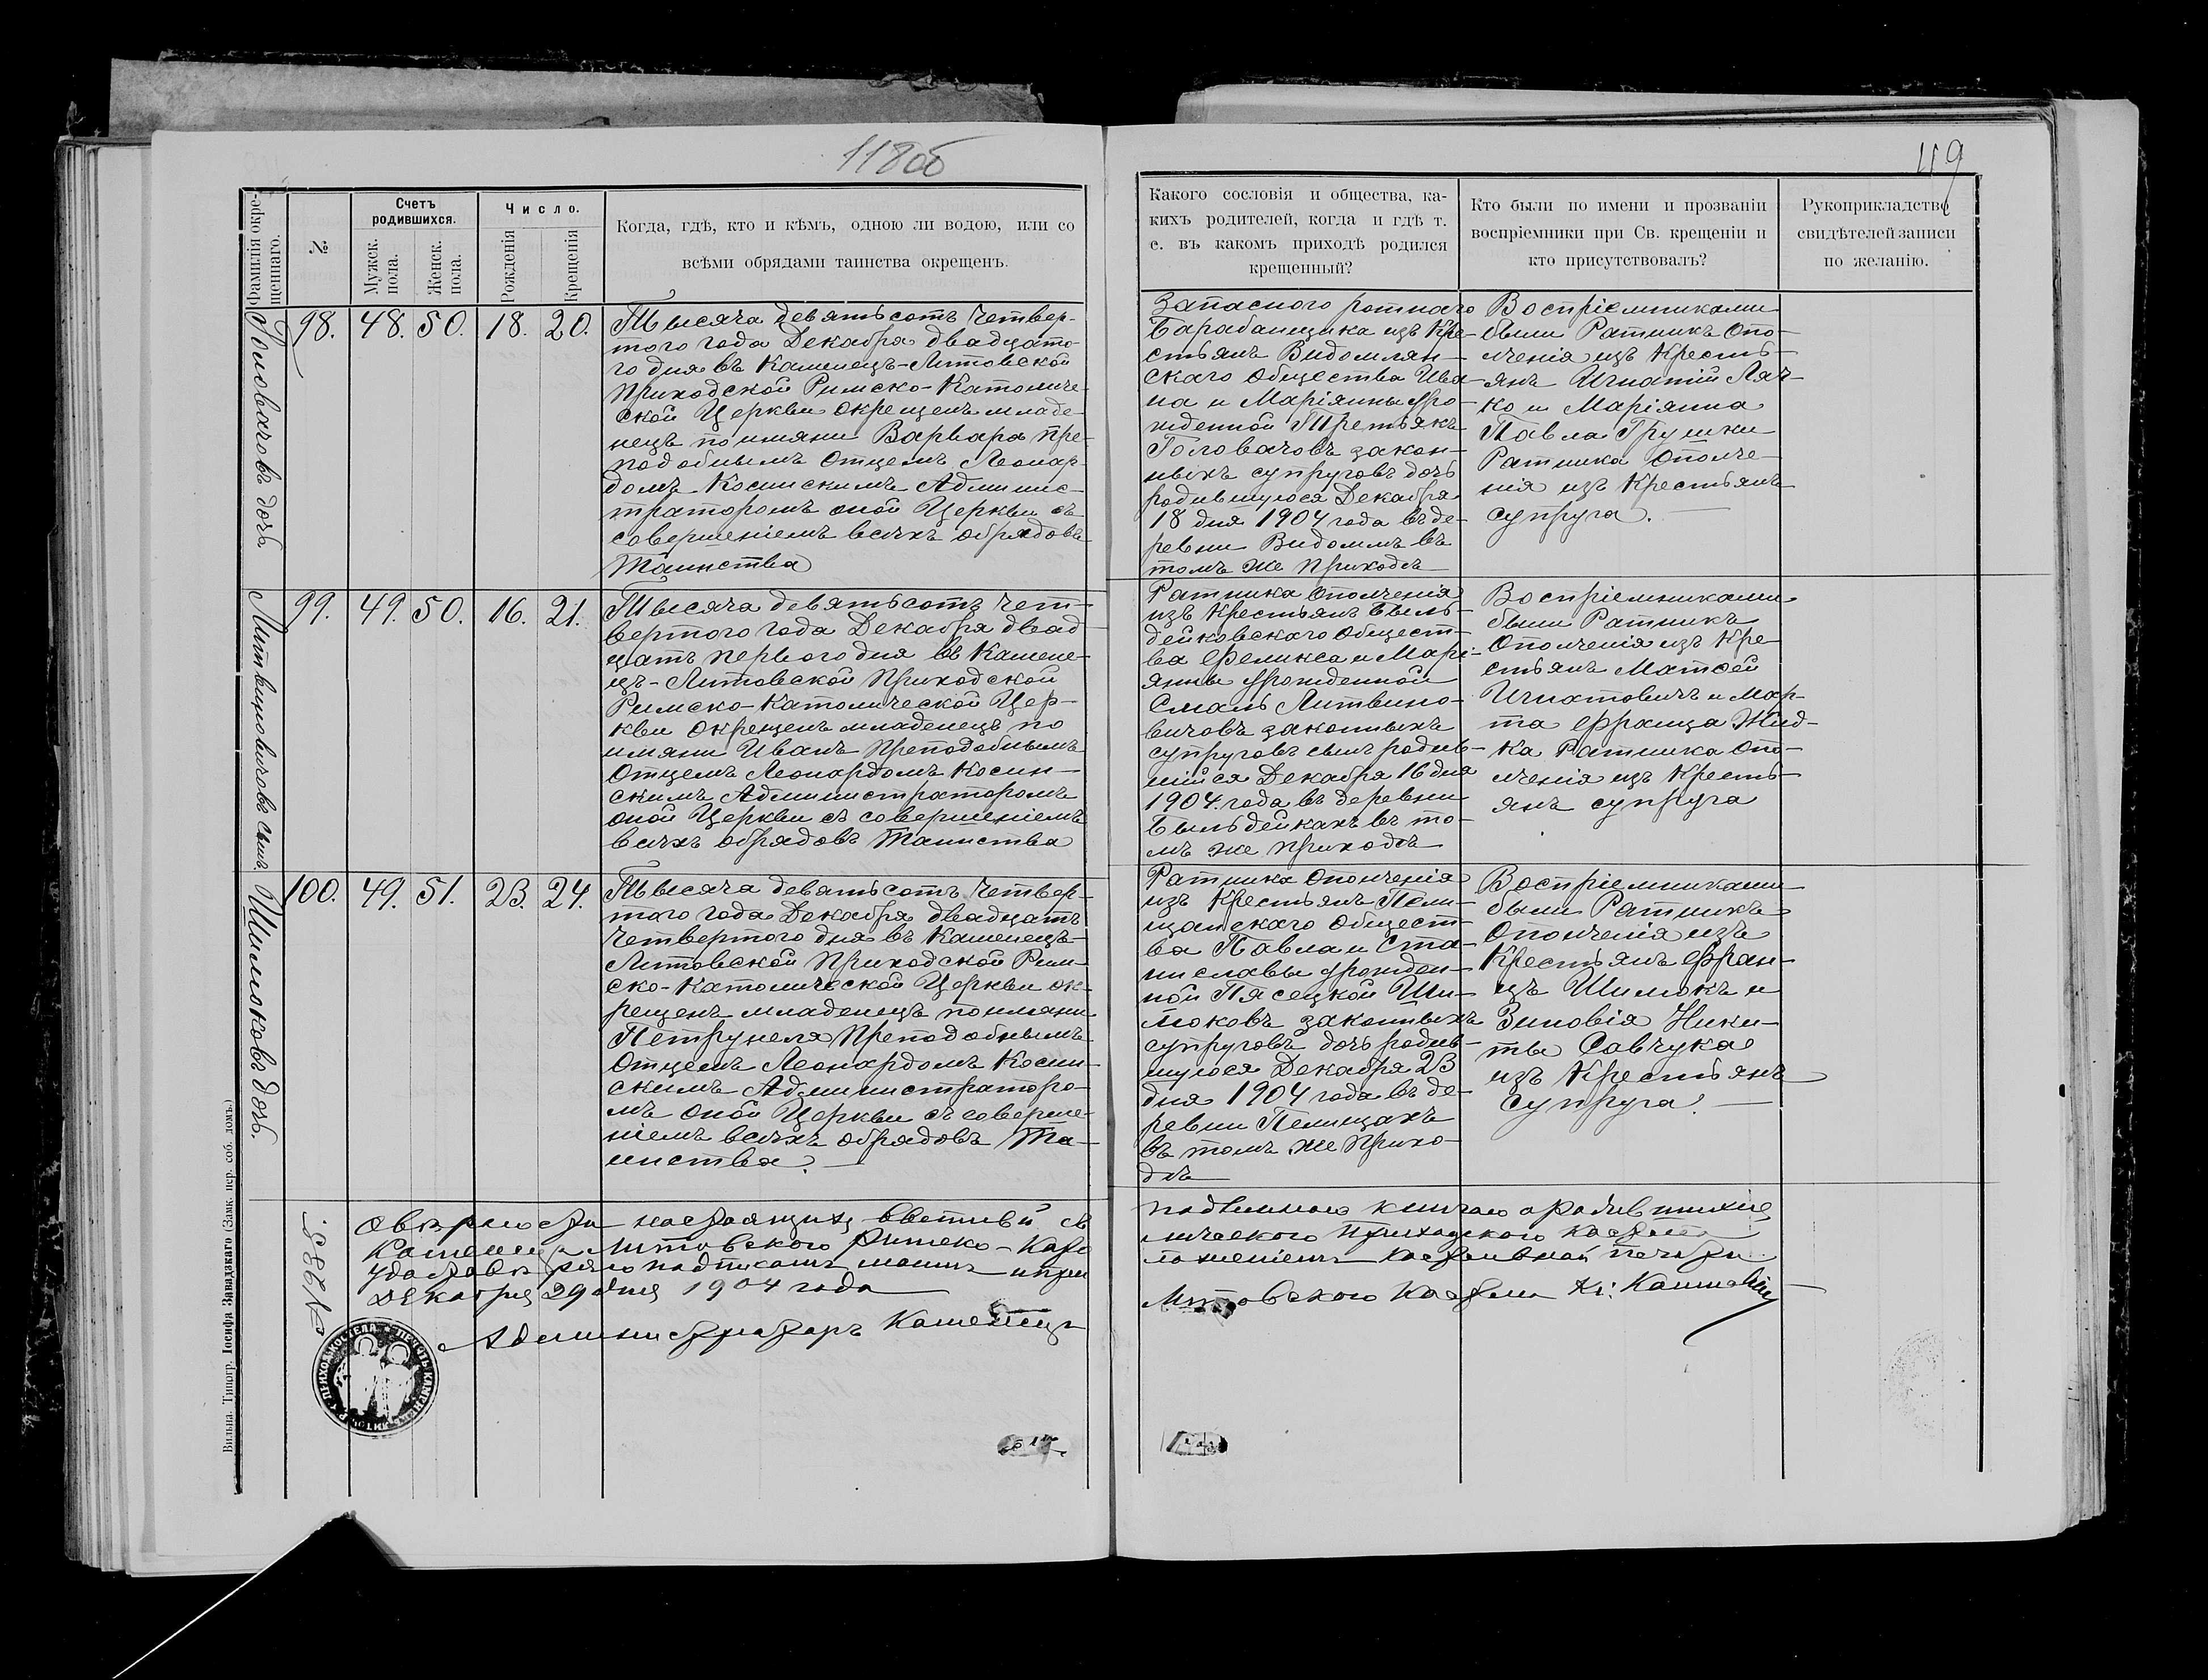 118об
119
Фамилія окре-
щеннаго.
№
Счетъ
родившихся.
Мужск.
пола.
Женск.
пола.
Число.
Рожденія
Крещенія
Когда, гдѣ, кто и кѣмъ, одною ли водою, или со
всѣми обрядами таинства окрещенъ.
Какого сословія и общества, ка-
кихъ родителей, когда и гдѣ т.
е. въ какомъ приходѣ родился
крещенный?
Кто были по имени и прозванію
воспріемники при Св. крещеніи и
кто присутствовалъ?
Рукоприкладство
свидѣтелей записи
по желанію.
Головачовъ дочь.
98. 48. 50. 18. 20.
Тысяча девятьсотъ четвер-
того года Декабря двадцато-
го дня въ Каменецъ-Литовской
Приходской Римско-Католиче-
ской Церкви окрещенъ младе-
нецъ по имяни Варвара пре-
подобнымъ Отцемъ Леонар-
домъ Косинскимъ Админис-
траторомъ оной Церкви съ
совершеніемъ всѣхъ обрядовъ
Таинства
Запасного ротнаго
Барабанщика изъ Кре-
стьянъ Видомлян-
скаго общества Ива-
на и Маріянны уро-
жденной Третьякъ
Головачовъ закон-
ныхъ супруговъ дочь
родившуюся Декабря
18 дня 1904 года въ де-
ревни Видомлѣ въ
томъ же приходѣ
Воспріемниками
были Ратникъ Опо-
лченія изъ Кресть-
янъ Игнатій Ляч-
ко и Маріянна
Павла Грушки
Ратника Ополче-
нія изъ Крестьянъ
супруга.
Литвиновичовъ сынъ.
99. 49. 50. 16. 21.
Тысяча девятьсотъ чет-
вертого года Декабря двад-
цать первого дня въ Камене-
цъ-Литовской Приходской
Римско-Католической Цер-
кви окрещенъ младенецъ по
имяни Иванъ Преподобнымъ
Отцемъ Леонардомъ Косин-
скимъ Администраторомъ
оной Церкви съ совершеніемъ
всѣхъ обрядовъ Таинства
Ратника ополченія
изъ Крестьянъ Быль-
дейковскаго общест-
ва Феликса и Марі-
янны урожденной
Смаль Литвино-
вичовъ законныхъ
супруговъ сынъ родив-
шійся Декабря 16 дня
1904 года въ деревни
Быльдейкахъ въ то-
мъ же приходѣ
Воспріемниками
были Ратникъ
Ополченія изъ Кре-
стьянъ Матѳей
Игнатовичъ и Мар-
та Франца Жид-
ка Ратника Опо-
лченія изъ Кресть-
янъ супруга
Шилюковъ дочь.
100. 49. 51. 23. 24.
Тысяча девятьсотъ четвер-
того года Декабря двадцать
четвертого дня въ Каменецъ-
Литовской Приходской Рим-
ско-Католической Церкви ок-
рещенъ младенецъ по имяни
Петрунеля Преподобнымъ
Отцемъ Леонардомъ Косин-
скимъ Администраторо-
мъ оной Церкви съ соверше-
ніемъ всѣхъ обрядовъ Та-
инства.
Ратника Ополченія
изъ Крестьянъ Пели-
щанскаго общест-
ва Павла и Ста-
ниславы урожден-
ной Пясецкой Ши-
люковъ законныхъ
супруговъ дочь родив-
шуюся Декабря 23
дня 1904 года въ де-
ревни Пелищахъ
въ томъ же Прихо-
дѣ
Воспріемниками
были Ратникъ
Ополченія изъ
Крестьянъ Фран-
цъ Шилюкъ и
Зиновія Ники-
ты Савчука
изъ Крестьянъ
супруга.
№ 385.
О вѣрности настоящихъ свѣтской съ подлинною книгою о родившихся
Каменецъ-Литовского Римско-Като лического Приходского Костела
удостовѣряю подписомъ моимъ и при ложеніемъ костельной печати
Декабря 29 дня 1904 года
Администраторъ Каменецъ Литовского Костела
Вильна. Типогр. Іосифа Завадзкаго (Замк. пер. соб. домъ.)